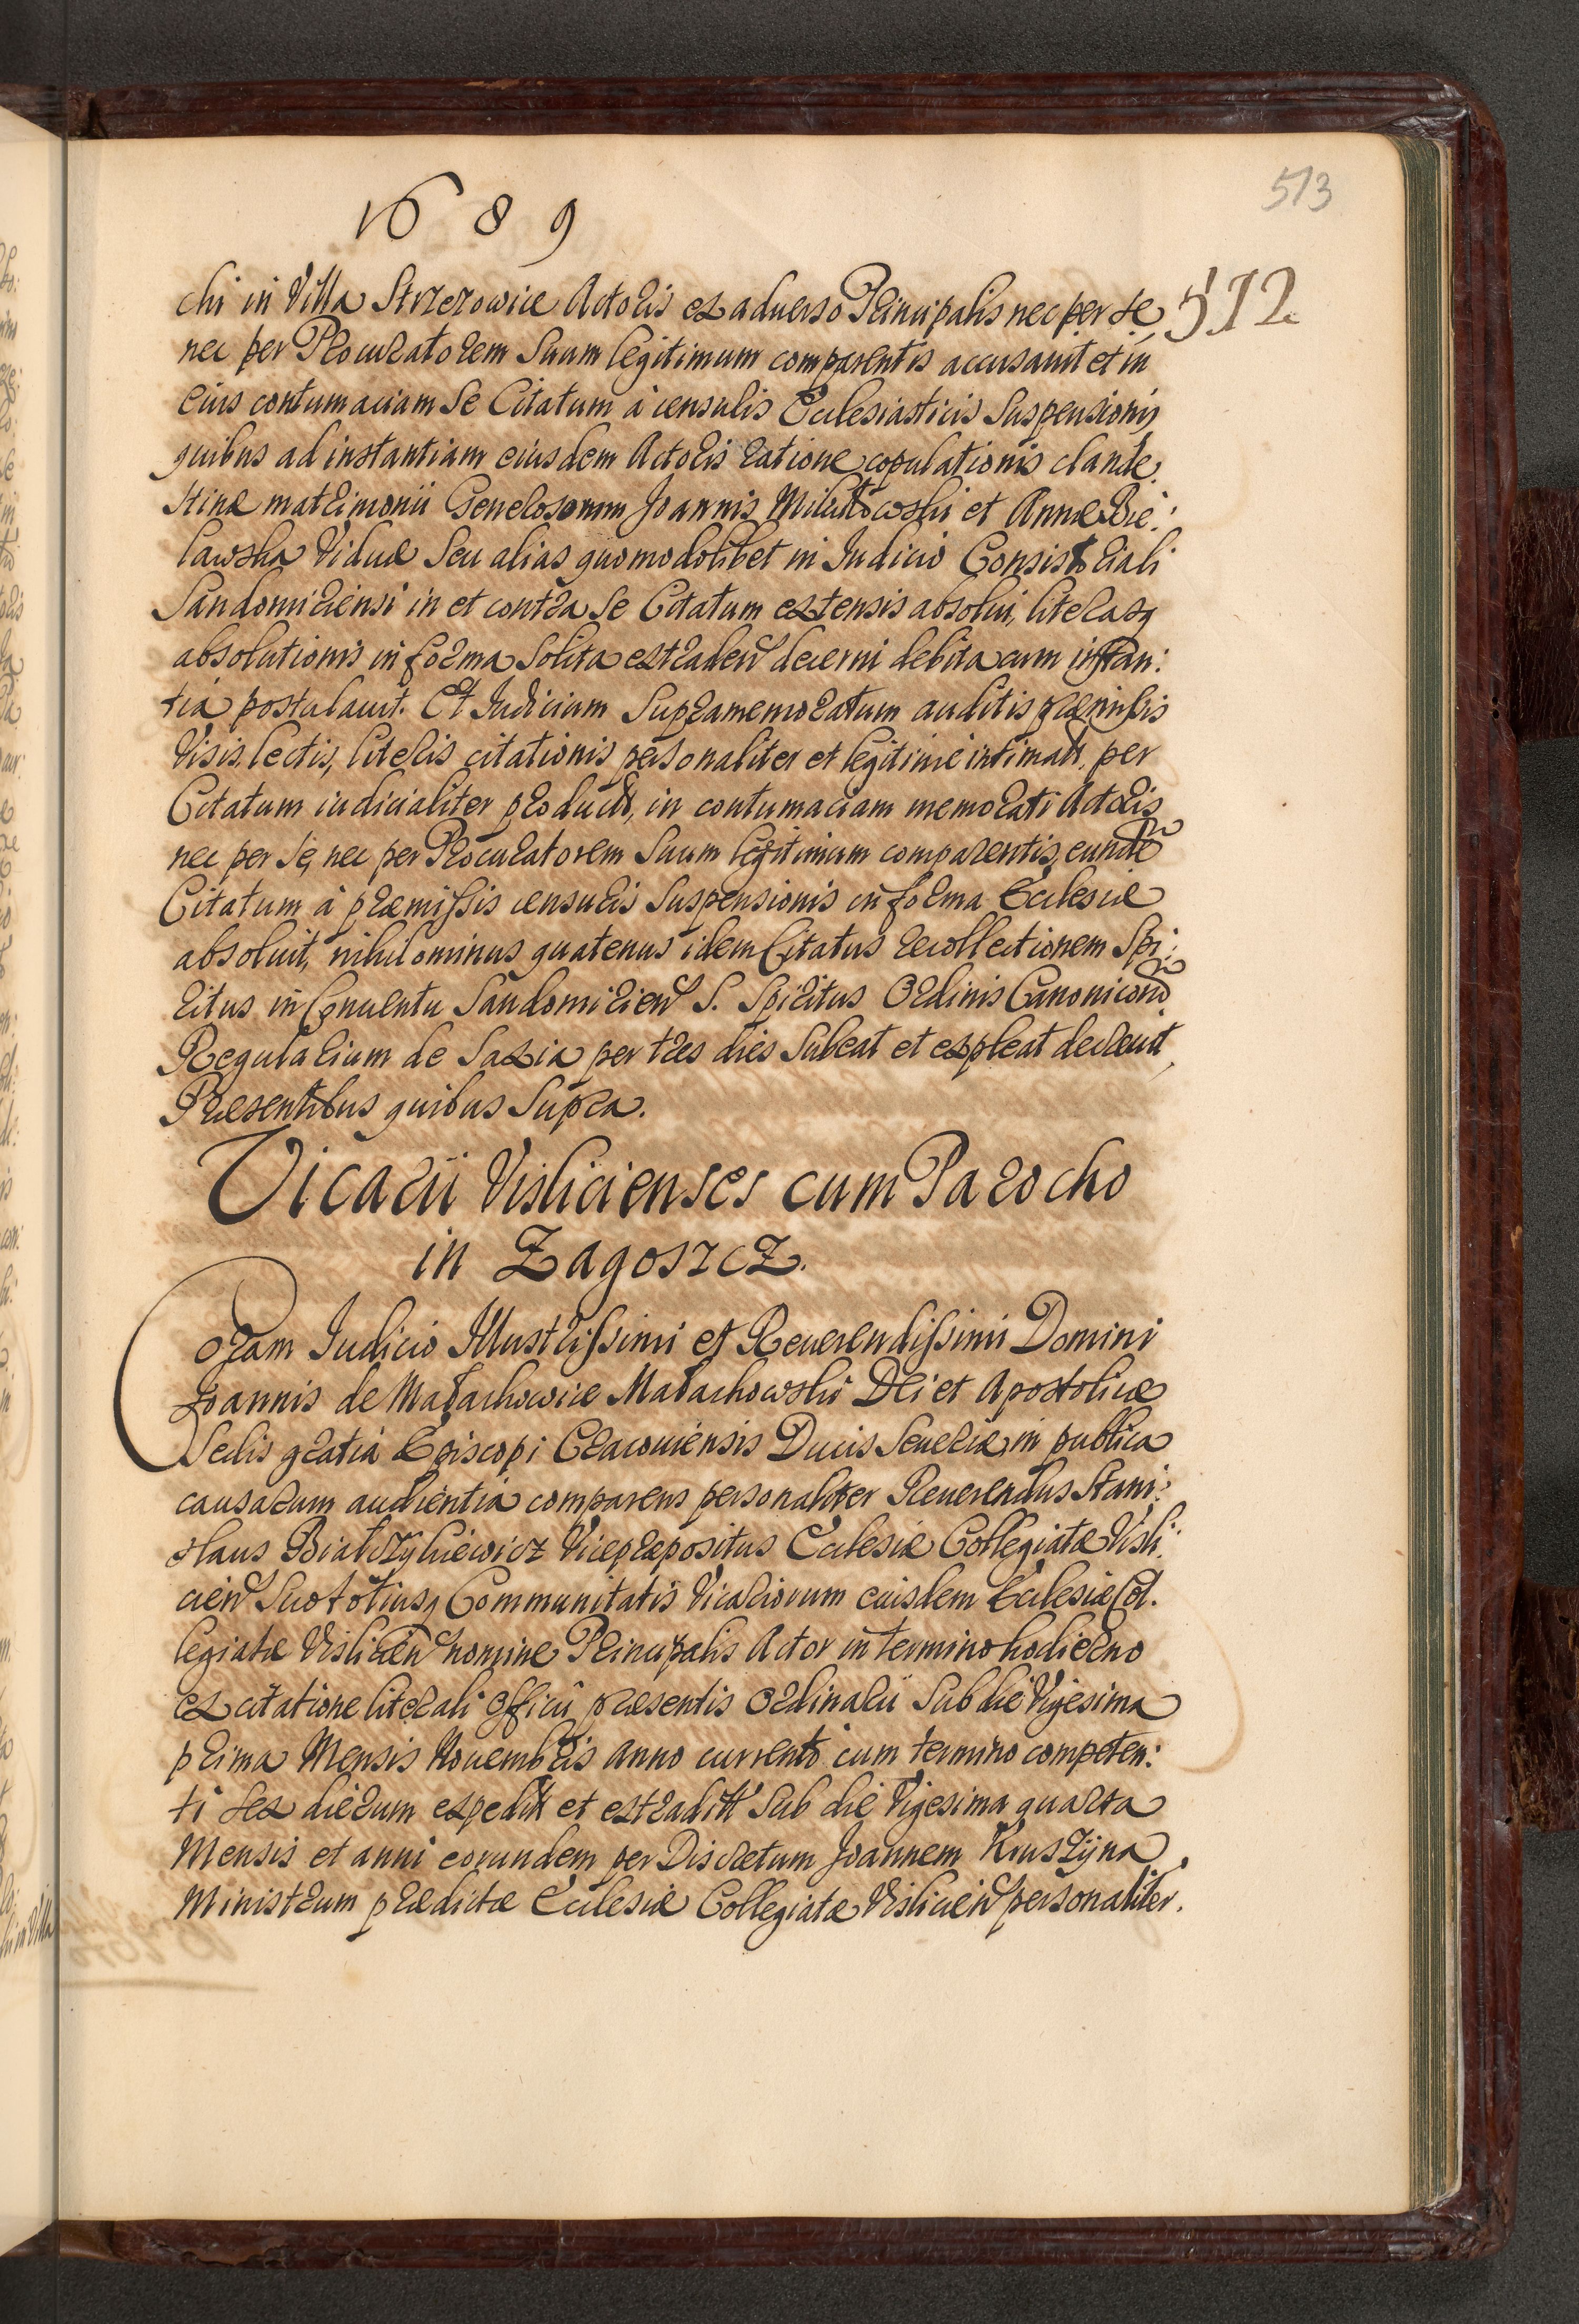 513
1689
512
chi in Villa Strzezowice Actoris ex aduerso Principalis nec per se,
nec per Procuratorem Suum legitimum comparentis accusauit et in
eius contumaciam Se Citatum à censuris Ecclesiasticis Suspensionis
quibus ad instantiam eiusdem Actoris ratione copulationis clande:
stinæ matrimonii Generosorum Joannis et Annæ Bie:
lawska Viduæ Seu alias quomodolibet in Judicio Consistoriali
Sandomiriensi in et contra Se Citatum extensis absolui, literasq
absolutionis in forma Solita extraden decerni debita cum instan:
tia postulauit. Et Judicium Supramemoratum auditis præmissis
Visis, lectis, literis citationis personaliter et legitime intimatis. per
Citatum iudicialiter productis, in contumaciam memorati Actoris
nec per se, nec per Procuratorem Suum legitimum comparentis, eundem
Citatum à præmissis censuris Suspensionis in forma Ecclesiæ
absoluit, nihilominus quatenus idem Citatus recollectionem Spi:
ritus in Conuentu Sandomirien S. Spiritus Ordinis Canonicorum
Regularium de Saxia per tres dies Subeat et expleat decreuit,
Præsentibus quibus Supra.
Vicarii Vislicienses cum Parocho
in Zagoszcz.
Coram Judicio Illustrissimi et Reuerendissimi Domini
Joannis de Małachowice Małachowski Dei et Apostolicæ
Sedis gratia Episcopi Cracouiensis Ducis Seueriæ in publica
causarum audientia comparens personaliter Reuerendus Stani:
slaus Białczykiewicz Vicepræpositus Ecclesiæ Collegiatæ Visli:
cien Suo totiusq Communitatis Vicariorum eiusdem Ecclesiæ Col.
legiatæ Vislicien nomine Principalis Actor in termino hodierno
ex citatione literali Officii præsentis Ordinarii Sub die Vigesima
prima Mensis Nouembris anno currenti cum termino competen:
ti sex dierum expedit et extradit Sub die Vigesima quarta
Mensis et anni eorundem per Discretum Joannem Kruszyna
Ministrum prædictæ Ecclesiæ Collegiatæ Vislicien personaliter.